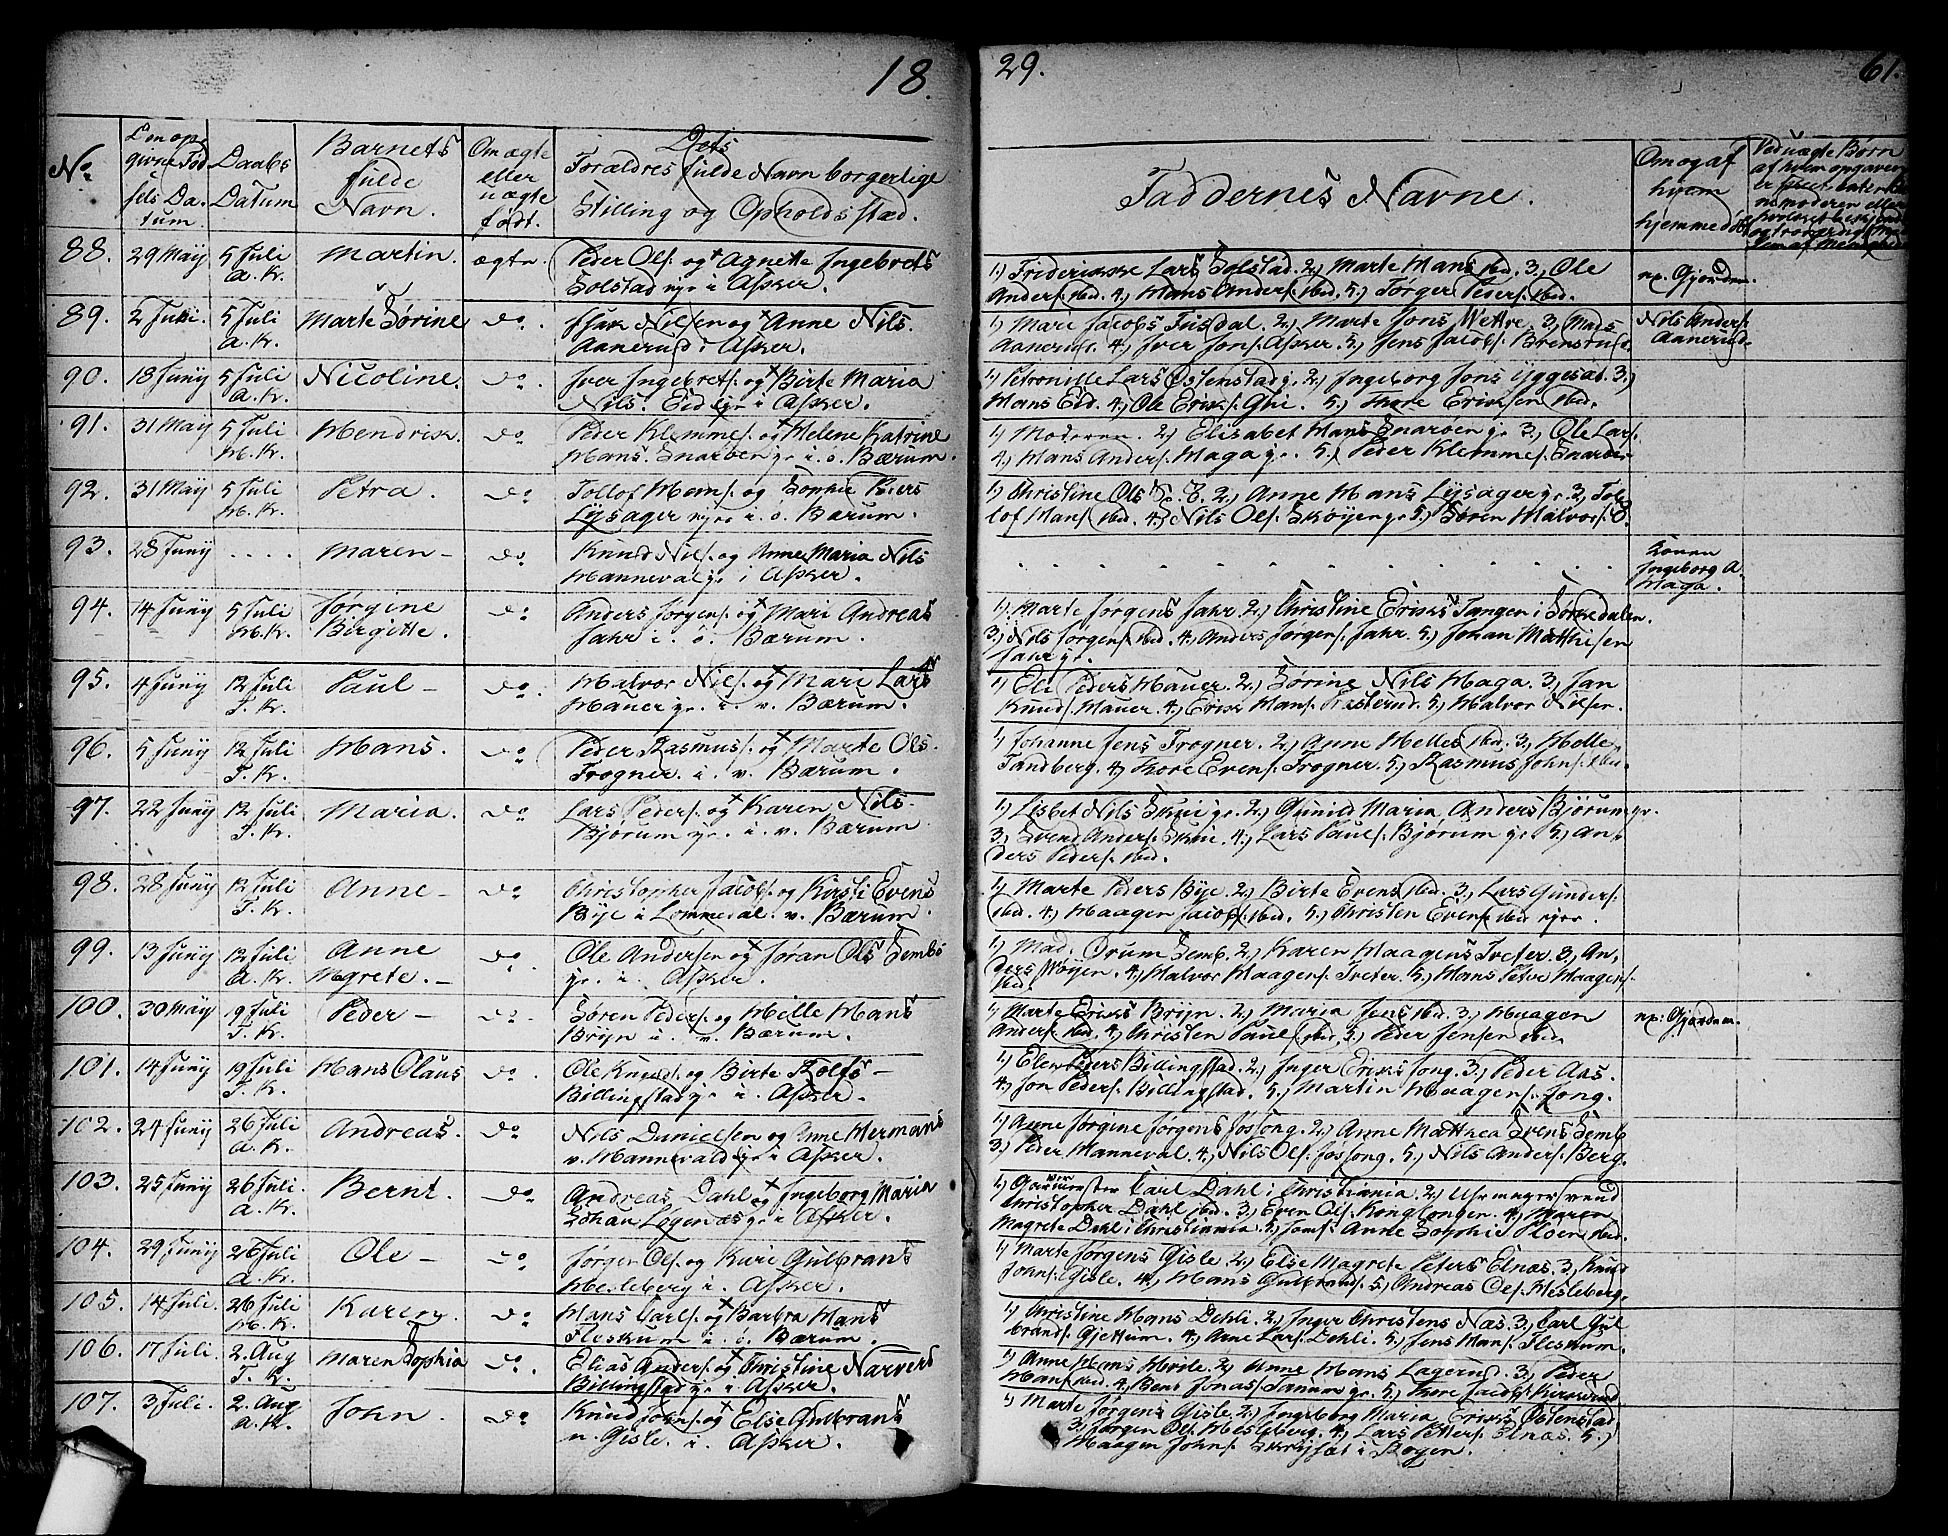 18
29.
61.
No
Daabs Datum
Barnets fulde Navn.
Om ægte eller uægte født.
Dets Forældres fulde Navn borgerlige Stilling og Opholdsstæd.
Faddernes Navne.
Om og af hvem hjemmedøbt
88. 29 May 5 Juli A. K. Martin. ægte. Peder Ols. og + Agnette Ingebrets
Solstad i Asker.
1.) Friderikke Lars Solstad. 2.) Marte Hans ibd. 3.) Ole
Anders. ibd. 4.) Hans Anders. ibd. 5.) Torger Peders. ibd.
89. 2 Juni. 5 Juli A. K. Marte Sørine do. Nilsen og + Anne Nils.
Aanerud i Asker.
1.) Mari Jacobs Fusdal. 2.) Marte Jons Wettre. 3.) Mads
Aanerud. 4.) Iver Jons. Asker. 5.) Jens Jacobs. Brensrud.
Nils Anders.
Aanerud.
90. 18 Juny 5 Juli A. K. Nicoline. do. Iver Ingebrets. og + Birte Maria
Nils. Eid i Asker.
1.) Petronille Lars Østenstad 2.) Ingeborg Jons Yggeset. 3.)
Hans Eid. 4.) Ole Eriks. Gui. 5.) Thore Eriksen ibd.
91. 31 May 5 Juli H. K. Hendrik. do Peder Klemmes. og + Helene Katrine
Hans. Snarøen i ø. Bærum.
1.) Moderen. 2.) Elisabet Hans Snarøen 3.) Ole Lars.
4.) Hans Anders. Haga 5.) Peder Klemmes. Snarøen
92. 31 May 5 Juli H. K. Petra. do Tollof Hans. og Sophie Peders
Lysager i ø. Bærum.
1.) Christine Ols 2.) Anne Hans Lysager 3.) Tol-
lof Hans. ibd. 4.) Nils Ols. Skøyen 5.) Søren Halvors.
93. 28 Juny .... Maren - do Knud Nils. og Anne Maria Nils
Manneval i Asker.
Konen
Ingeborg A.
Haga.
94. 14 Juny 5 Juli H. K. Jørgine Birgitte. do Anders Jørgens. og + Mari Andreas
Jahr i ø. Bærum.
1.) Marte Jørgens Jahr. 2.) Christine Eriks Tangen i Sørkedalen.
3.) Nils Jørgens. ibd. 4.) Anders Jørgens. Jahr. 5.) Johan Mathisen
Jahr
95. 4 Juny 12 Juli T. K. Paul - do. Halvor Nils. og + Mari Lars
Hauer i v. Bærum.
1.) Eli Peders Hauer. 2.) Sørine Nils Haga. 3.) Jan
Knuds. Hauer. 4.) Erik Hans. Presterud. 5.) Halvor Nilsen.
96. 5 Juny 12 Juli T. K. Hans. do Peder Rasmus. og + Marte Ols.
Frogner. i. v. Bærum.
1.) Johanne Jens Frogner. 2.) Anne Helles ibd. 3.) Helle
Tandberg. 4.) Thore Evens. Frogner. 5.) Rasmus Johns. ibd.
97. 22 Juny 12 Juli T. K. Maria. do Lars Peders. og + Karen Nils.
Bjørum i v. Bærum.
1.) Lisbet Nils Skui 2.) Gunild Maria Anders Bjørum
3.) Svend Anders. Skui. 4.) Lars Pauls. Bjørum 5.) An-
ders Peders. ibd.
98. 28 Juny 12 Juli T. K. Anne - do Christopher Jacobs. og Kirsti Evens
Bye i Lommedal. v. Bærum.
1.) Marte Peders Bye. 2.) Birte Evens ibd. 3.) Lars Gunders.
ibd. 4.) Haagen Jacobs. ibd. 5.) Christen Evens. ibd
99. 13 Juny 12 Juli A. K. Anne Mgrete. - do. Ole Andersen og + Jøran Ols Semb
i. Asker.
1.) Mad. Drum Semb. 2.) Karen Haagens Tveter. 3.) An-
ders Wøyen. 4.) Halvor Haagens. Tveter. 5.) Hans Peter Haagens.
ibd.
100. 30 May 9 Juli T. K. Peder - do. Søren Peders. og Helle Hans
Bryn i v. Bærum.
1.) Marte Eriks Bryn. 2.) Maria Jens ibd. 3.) Haagen
Anders. ibd. 4.) Christen Pauls. ibd. 5.) Peder Jensen ibd.
101. 14 Juny 19 Juli T. K. Hans Olaus do. Ole Knuds. og Birte Rolfs -
Billingstad i. Asker.
1.) Elen Peders Billingstad. 2.) Inger Eriks Jong. 3.) Peder Aas.
4.) Jon Peders. Billingstad. 5.) Martin Haagens. Jong.
102. 24 Juny 26 Juli A. K. Andreas. do Nils Danielsen og Anne Hermans
v. Mannevald i Asker.
1.) Anne Jørgine Jørgens Jøssong. 2.) Anne Mathea Svens Semb
3.) Peder Manneval. 4.) Nils Ols. Jøssong. 5.) Nils Anders. Berg.
103. 25 Juny 26 Juli A. K. Bernt. do Andreas Dahl + Ingeborg Maria
Johan Løgenæs i Asker.
Carl Dahl i Christiania 2.) Uhrmagersvend
Christopher Dahl ibd. 3.) Even Ols. Konglongen. 4.) Maren
Magrete Dahl i Christiania 5.) Jomf. Anne Sophie Ploen ibd.
104. 29 Juny 26 Juli A. K. Ole - do Jørgen Ols. og Kari Gulbrans
Hesleberg i. Asker.
1.) Marte Jørgens Gisle. 2.) Else Magrete Peters Elnæs. 3.) Knud
Johns. Gisle. 4.) Hans Gulbrands. 5.) Andreas Ols. Hesleberg.
105. 14 Juli. 26 Juli H. K. Karen do Hans Carls. og + Barbra Hans
Fleskum i ø. Bærum.
1.) Christine Hans Dehli. 2.) Inger Christens Næs. 3.) Carl Gul-
brands. Gjettum. 4.) Arne Lars. Dehli. 5.) Jens Hans. Fleskum.
106. 17 Juli. 2. Aug T. K. Maren Sophia do. Elias Anders. og Christine Narvers
Billingstad i Asker.
1.) Anne Hans Hvile. 2.) Anne Hans Lagerud. 3.) Peder
Hans. ibd. 4.) Bent Jonas. Tanum 5.) Thore Jacobs. Kirkerud
107. 3 Juli. 2. Aug A. K. John. do Knud Johns. og + Else Gulbrans
n. Gisle. i. Asker.
1.) Marte Jørgens Gisle. 2.) Ingeborg Maria Eriks Østenstad
3.) Jørgen Ols. Hesleberg. 4.) Lars Petters. Elnæs. 5.)
Haagen Johns. i Bogen.